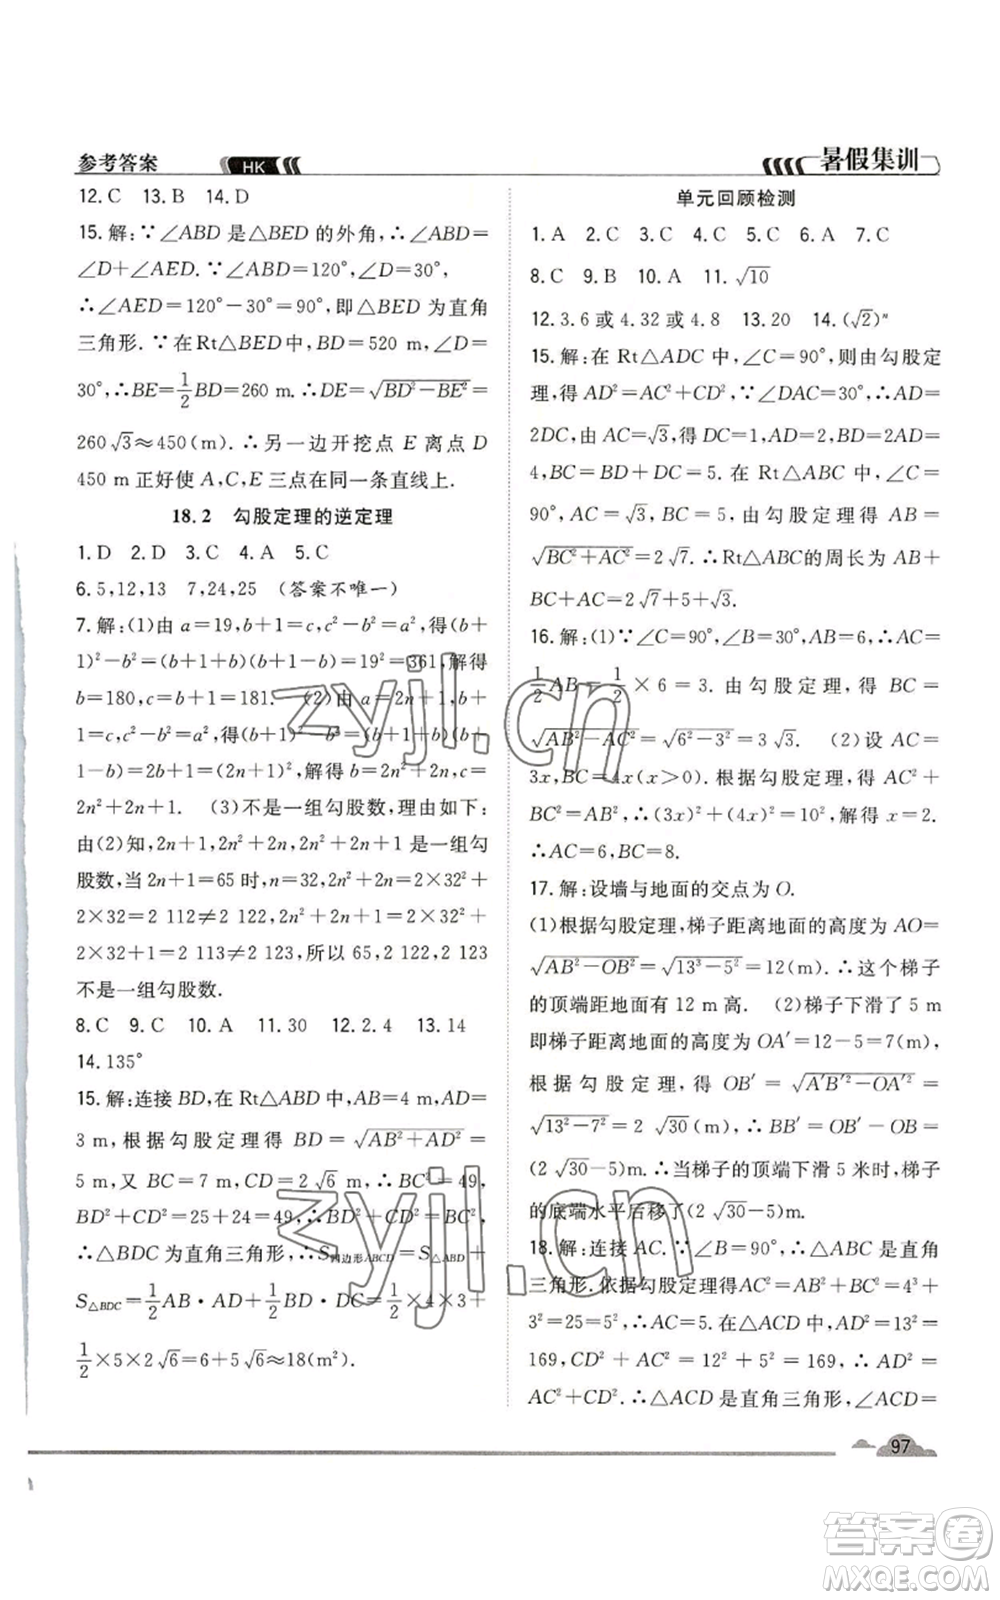 参考答案 HK 暑假集训
12. C 13. B 14. D
15. 解:∵∠ABD 是△BED 的外角,∴∠ABD=
∠D+∠AED. ∵∠ABD=120°,∠D=30°,
∴∠AED=120°-30°=90°,即△BED 为直角
三角形. ∵在 Rt△BED 中,BD=520 m,∠D=
30°,∴BE=\frac{1}{2}BD=260 m. ∴DE=\sqrt{BD²-BE²}=
260\sqrt{3}≈450(m). ∴另一边开挖点 E 离点 D
450 m 正好使 A,C,E 三点在同一条直线上.
18.2 勾股定理的逆定理
1. D 2. D 3. C 4. A 5. C
6. 5,12,13 7,24,25 (答案不唯一)
7. 解:(1)由 a=19,b+1=c,c²-b²=a²,得(b+
1)²-b²=(b+1+b)(b+1-b)=19²=361,解得
b=180,c=b+1=181. (2)由 a=2n+1,b+
1=c,c²-b²=a²,得(b+1)²-b²=(b+1+b)(b+
1-b)=(2n+1)²,解得 b=2n²+2n,c=b+1=
2n²+2n+1. (3)不是一组勾股数,理由如下:
由(2)知,2n+1,2n²+2n,2n²+2n+1 是一组勾
股数,当 2n+1=65 时,n=32,2n²+2n=2×32²+
2×32=2 112≠2 122,2n²+2n+1=2×32²+
2×32+1=2 113≠2 123,所以 65,2 122,2 123
不是一组勾股数.
8. C 9. C 10. A 11. 30 12. 2.4 13. 14
14. 135°
15. 解:连接 BD,在 Rt△ABD 中,AB=4 m,AD=
3 m,根据勾股定理得 BD=\sqrt{AB²+AD²}=
5 m,又 BC=7 m,CD=2\sqrt{6} m,∴BC²=49,
BD²+CD²=25+24=49,∴BC²=BD²+CD²,
∴△BDC 为直角三角形,∴S四边形ABCD=S△ABD+
S△BDC=\frac{1}{2}AB·AD+\frac{1}{2}BD·DC=\frac{1}{2}×4×3+
\frac{1}{2}×5×2\sqrt{6}=6+5\sqrt{6}≈18(m²).
单元回顾检测
1. A 2. C 3. C 4. C 5. C 6. A 7. C
8. C 9. B 10. A 11. \sqrt{10}
12. 3.6 或 4.32 或 4.8 13. 20 14. (\sqrt{2})ⁿ
15. 解:在 Rt△ADC 中,∠C=90°,则由勾股定
理,得 AD²=AC²+CD². ∵∠DAC=30°,∴AD=
2DC,由 AC=\sqrt{3},得 DC=1,AD=2,BD=2AD=
4,BC=BD+DC=5. 在 Rt△ABC 中,∠C=
90°,AC=\sqrt{3},BC=5,由勾股定理得 AB=
\sqrt{BC²+AC²}=2\sqrt{7}. ∴Rt△ABC的周长为 AB+
BC+AC=2\sqrt{7}+5+\sqrt{3}.
16. 解:(1)∵∠C=90°,∠B=30°,AB=6,∴AC=
\frac{1}{2}AB=\frac{1}{2}×6=3. 由勾股定理,得 BC=
\sqrt{AB²-AC²}=\sqrt{6²-3²}=3\sqrt{3}. (2)设 AC=
3x,BC=4x(x>0). 根据勾股定理,得 AC²+
BC²=AB²,∴(3x)²+(4x)²=10²,解得 x=2.
∴AC=6,BC=8.
17. 解:设墙与地面的交点为 O.
(1)根据勾股定理,梯子距离地面的高度为 AO=
\sqrt{AB²-OB²}=\sqrt{13²-5²}=12(m). ∴这个梯子
的顶端距地面有 12 m 高. (2)梯子下滑了 5 m
即梯子距离地面的高度为 OA′=12-5=7(m),
根据勾股定理,得 OB′=\sqrt{A′B′²-OA′²}=
\sqrt{13²-7²}=2\sqrt{30}(m). ∴BB′=OB′-OB=
(2\sqrt{30}-5)m. ∴当梯子的顶端下滑 5 米时,梯子
的底端水平后移了(2\sqrt{30}-5)m.
18. 解:连接 AC. ∵∠B=90°,∴△ABC 是直角
三角形. 依据勾股定理得AC²=AB²+BC²=4²+
3²=25=5²,∴AC=5. 在△ADC 中,AD²=
169,CD²+AC²=12²+5²=169,∴AD²=
AC²+CD². ∴△ACD 是直角三角形,∠ACD=
97
zyjl.cn
zyjl.cn
答案卷
MXQE.COM